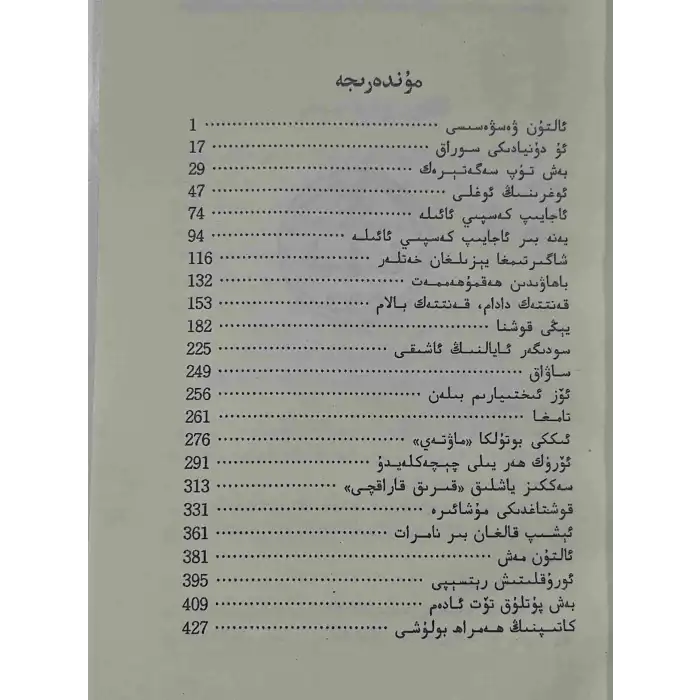 مۇندەرىجە
ئالتۇن ۋەسۋەسىسى ................ 1
ئۇ دۇنيادىكى سوراق ................ 17
بەش تۈپ سەگەتېرەك ................ 29
ئوغرىنىڭ ئوغلى ................ 47
ئاجايىپ كەسپىي ئائىلە ................ 74
يەنە بىر ئاجايىپ كەسپىي ئائىلە ................ 94
شاگىرتىمغا يېزىلغان خەتلەر ................ 116
باھاۋىدىن ھەقمۇھەممەت ................ 132
قەنتتەك دادام، قەنتتەك بالام ................ 153
يېڭى قوشنا ................ 182
سودىگەر ئايالنىڭ ئاشىقى ................ 225
ساۋاق ................ 249
ئۆز ئىختىيارىم بىلەن ................ 256
تامغا ................ 261
ئىككى بوتۇلكا «ماۋتەي» ................ 276
ئۆرۈك ھەر يىلى چېچەكلەيدۇ ................ 291
سەككىز ياشلىق «قىرىق قاراقچى» ................ 313
قوشتاغدىكى مۇشائىرە ................ 331
ئېشىپ قالغان بىر نامرات ................ 361
ئالتۇن مەش ................ 381
ئورۇقلىتىش رېتسېپى ................ 395
بەش پۇتلۇق تۆت ئادەم ................ 409
كاتىپنىڭ ھەمراھ بولۇشى ................ 427